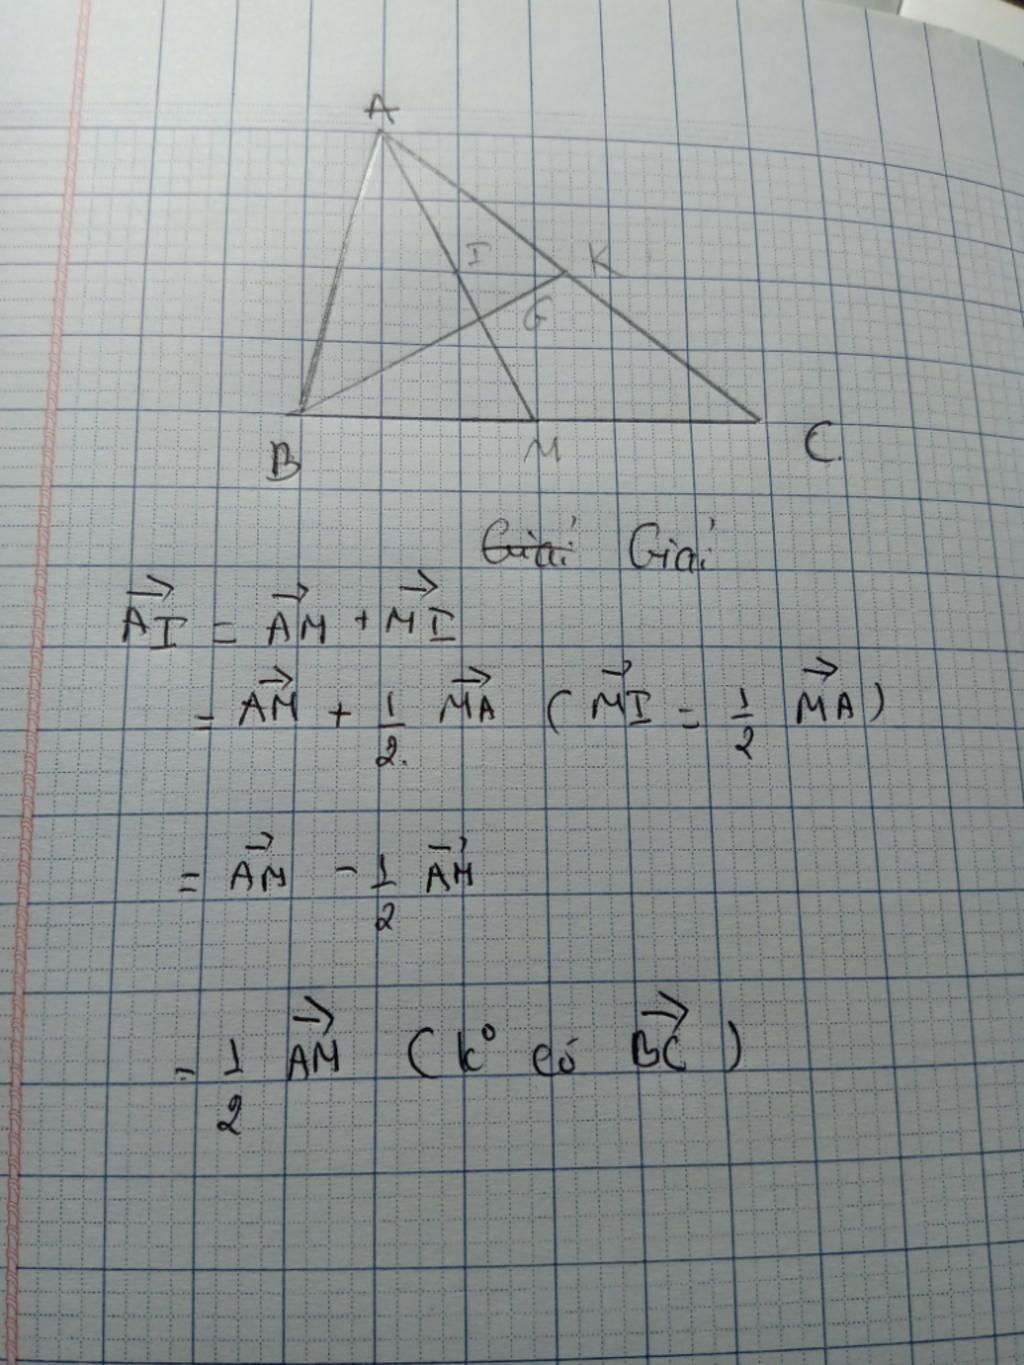 A
I
K
G
B
M
C.
Giải Giải
AI→ = AM→ + MI→
= AM→ + 1/2. MA→ ( MI→ = 1/2 MA→ )
= AM→ - 1/2 AM→
= 1/2 AM→ ( k° có BC→ )